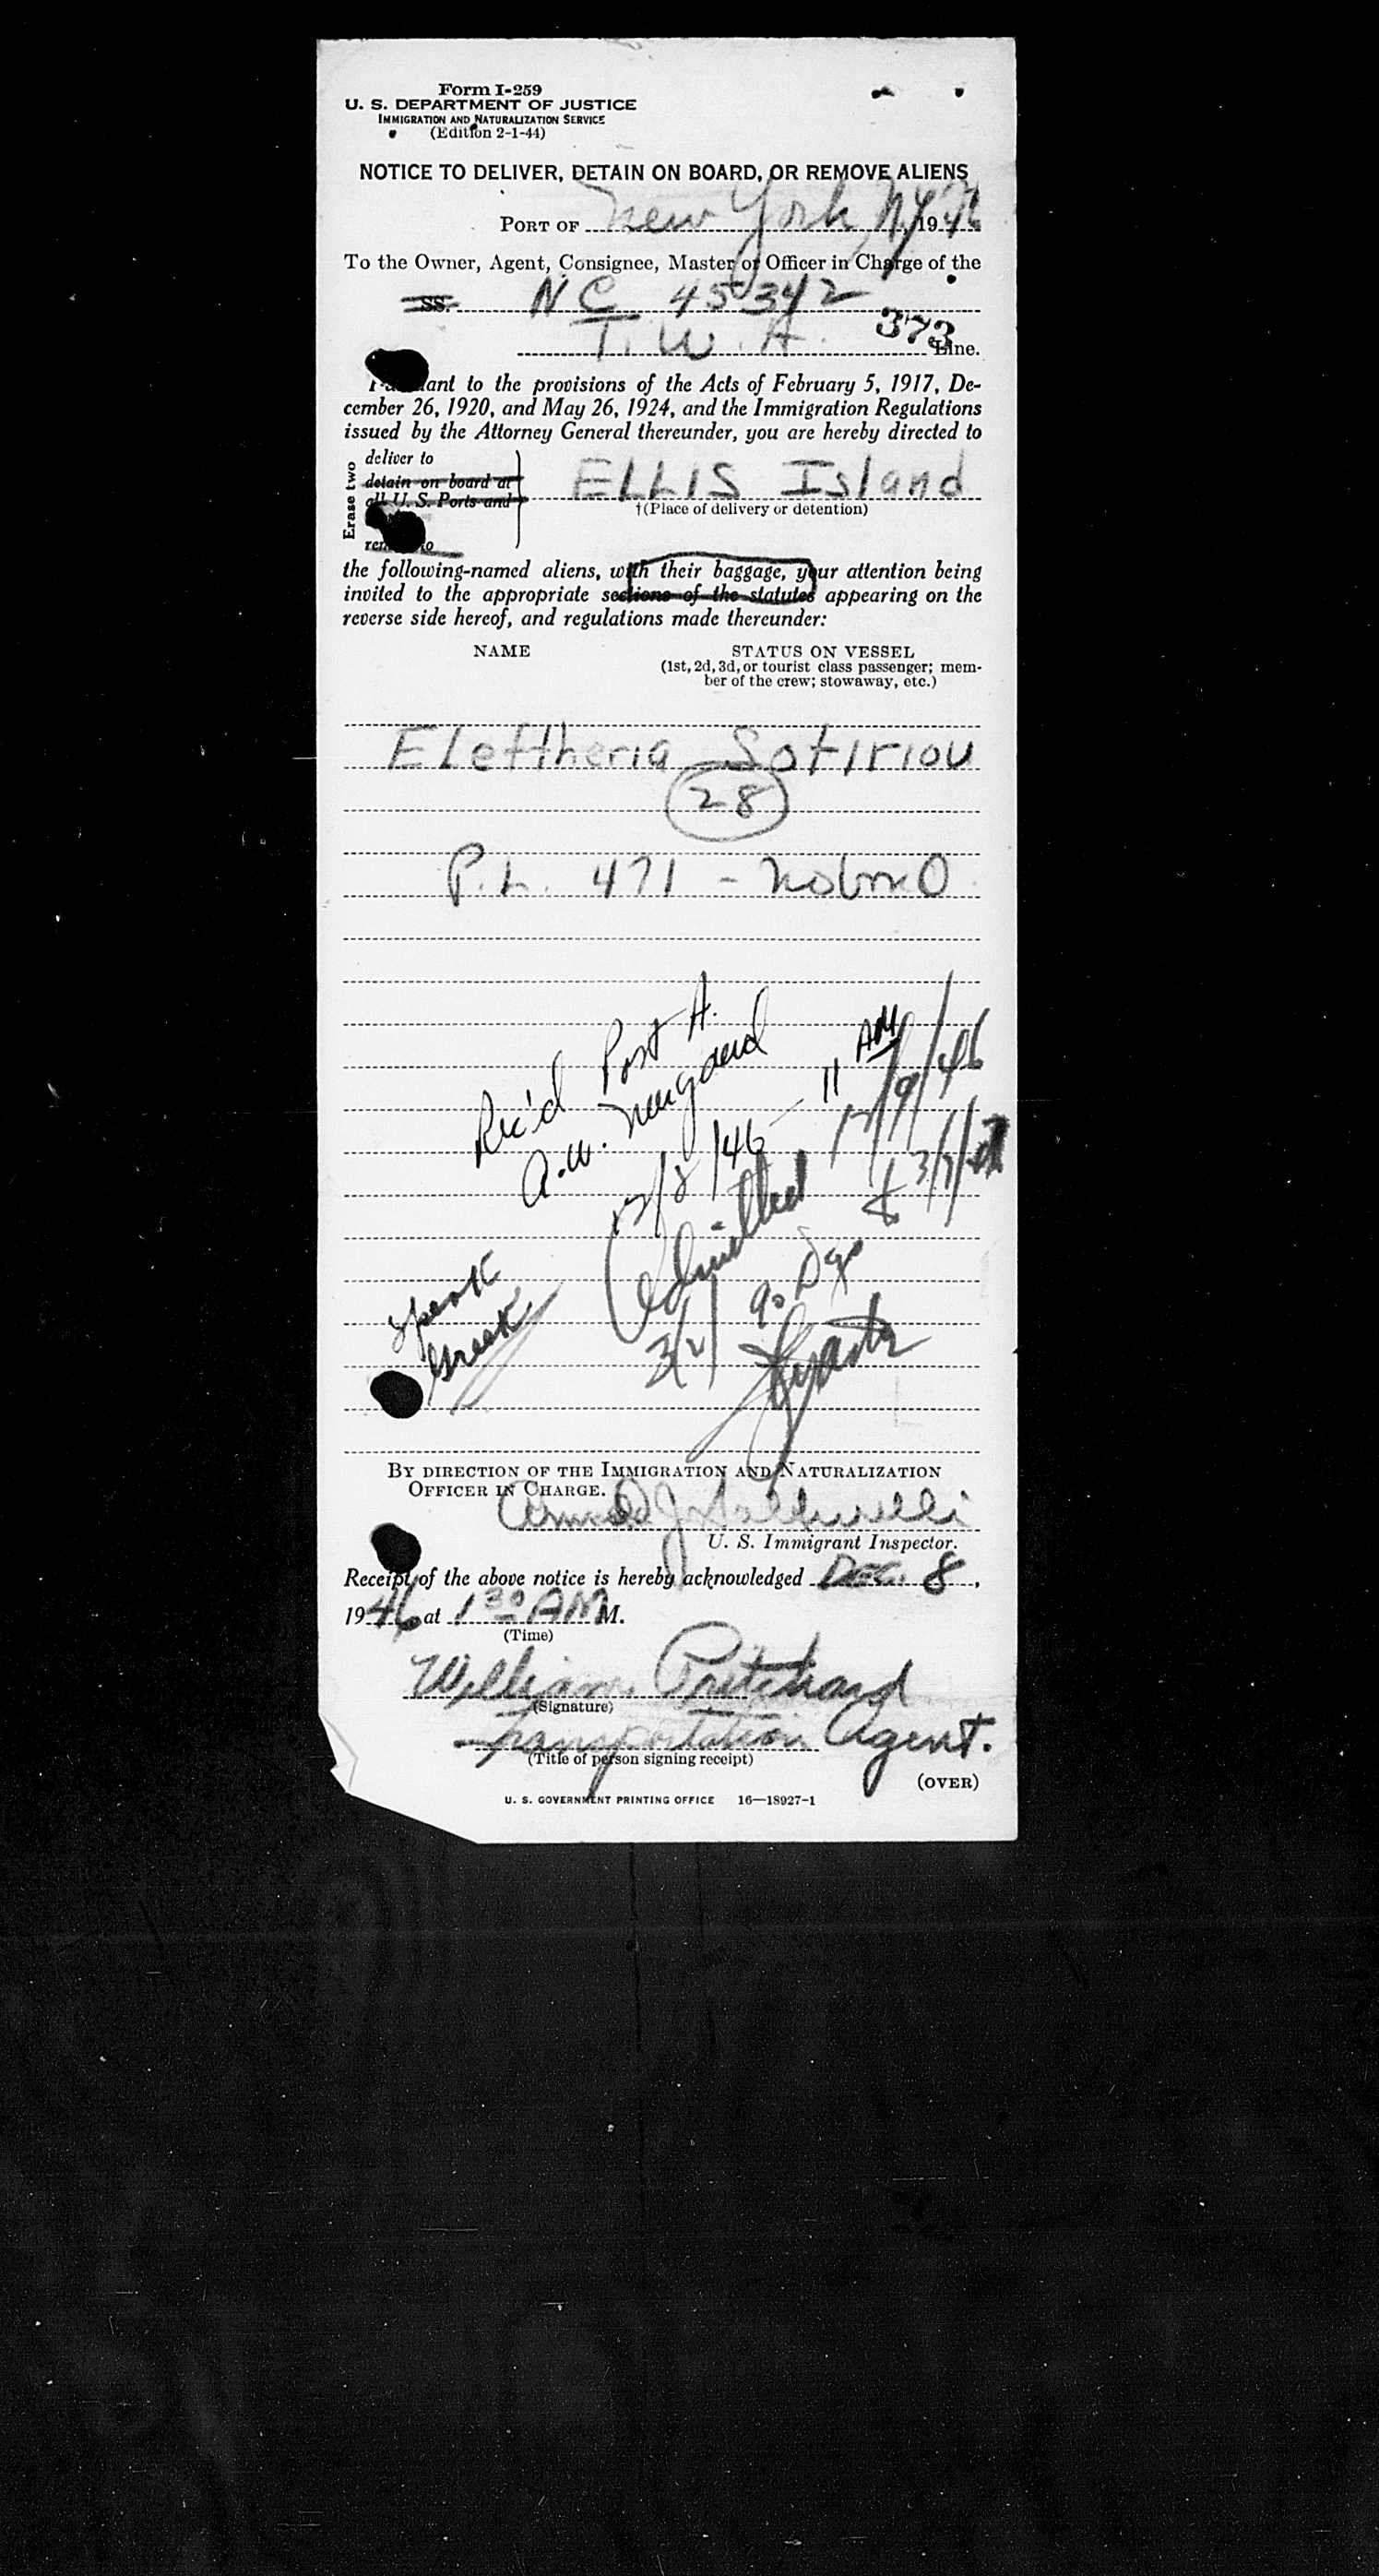 Form I-259
U. S. DEPARTMENT OF JUSTICE
IMMIGRATION AND NATURALIZATION SERVICE
(Edition 2-1-44)
NOTICE TO DELIVER, DETAIN ON BOARD, OR REMOVE ALIENS
PORT OF New York, N.Y. 1946
To the Owner, Agent, Consignee, Master or Officer in Charge of the
SS. NC 45342
T. W. A. 373 Line.
Pursuant to the provisions of the Acts of February 5, 1917, De-
cember 26, 1920, and May 26, 1924, and the Immigration Regulations
issued by the Attorney General thereunder, you are hereby directed to
Erase two
deliver to
detain on board at
all U. S. Ports and
ELLIS Island
†(Place of delivery or detention)
the following-named aliens, with their baggage, your attention being
invited to the appropriate sections of the statutes appearing on the
reverse side hereof, and regulations made thereunder:
NAME
STATUS ON VESSEL
(1st, 2d, 3d, or tourist class passenger; mem-
ber of the crew; stowaway, etc.)
Eleftheria Sotiriou
28
P.L. 471 -
Rec'd Post A.
A.W.
12/8/46 - 11 AM
12/9/46
Admitted
3(2)
90 Dys
Speak
Greek
BY DIRECTION OF THE IMMIGRATION AND NATURALIZATION
OFFICER IN CHARGE.
U. S. Immigrant Inspector.
Receipt of the above notice is hereby acknowledged DEC. 8,
1946 at 1 30 AM M.
(Time)
William Pritchard
(Signature)
Transportation Agent.
(Title of person signing receipt)
(OVER)
U. S. GOVERNMENT PRINTING OFFICE 16—18927-1